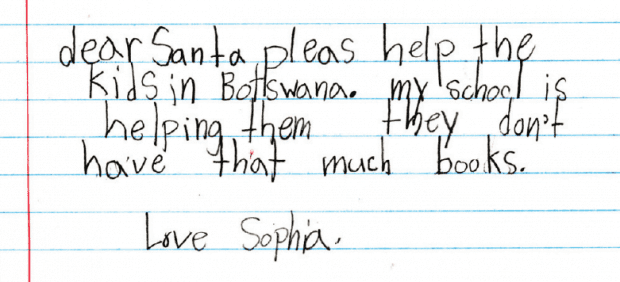 dear Santa pleas help the
Kids in Botswana. my school is
helping them they don't
have that much books.
Love Sophia.